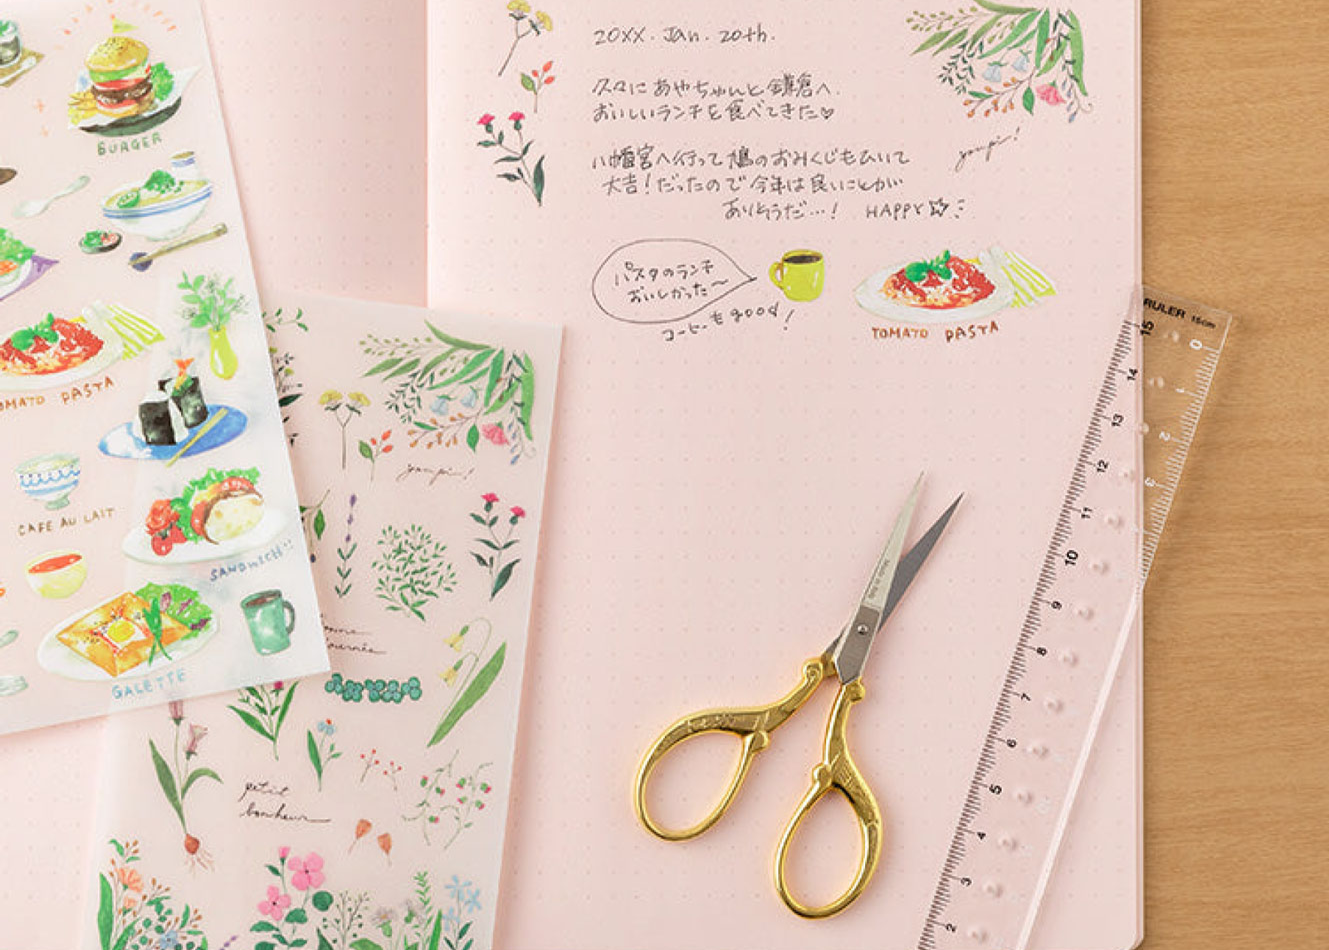 BURGER
TOMATO PASTA
CAFE AU LAIT
SANDWICH!!
GALETTE
petit
bonheur
20XX. Jan. 20th.
久々にあやちゃんと鎌倉へ.
おいしいランチを食べてきた♡
八幡宮へ行って鳩のおみくじもひいて
大吉!だったので今年は良いことが
ありそうだ…! HAPPY☆
パスタのランチ
おいしかった〜
コーヒーも good!
TOMATO PASTA
RULER 15cm
15
14
13
12
11
10
9
8
7
6
5
4
3
2
0
1
2
3